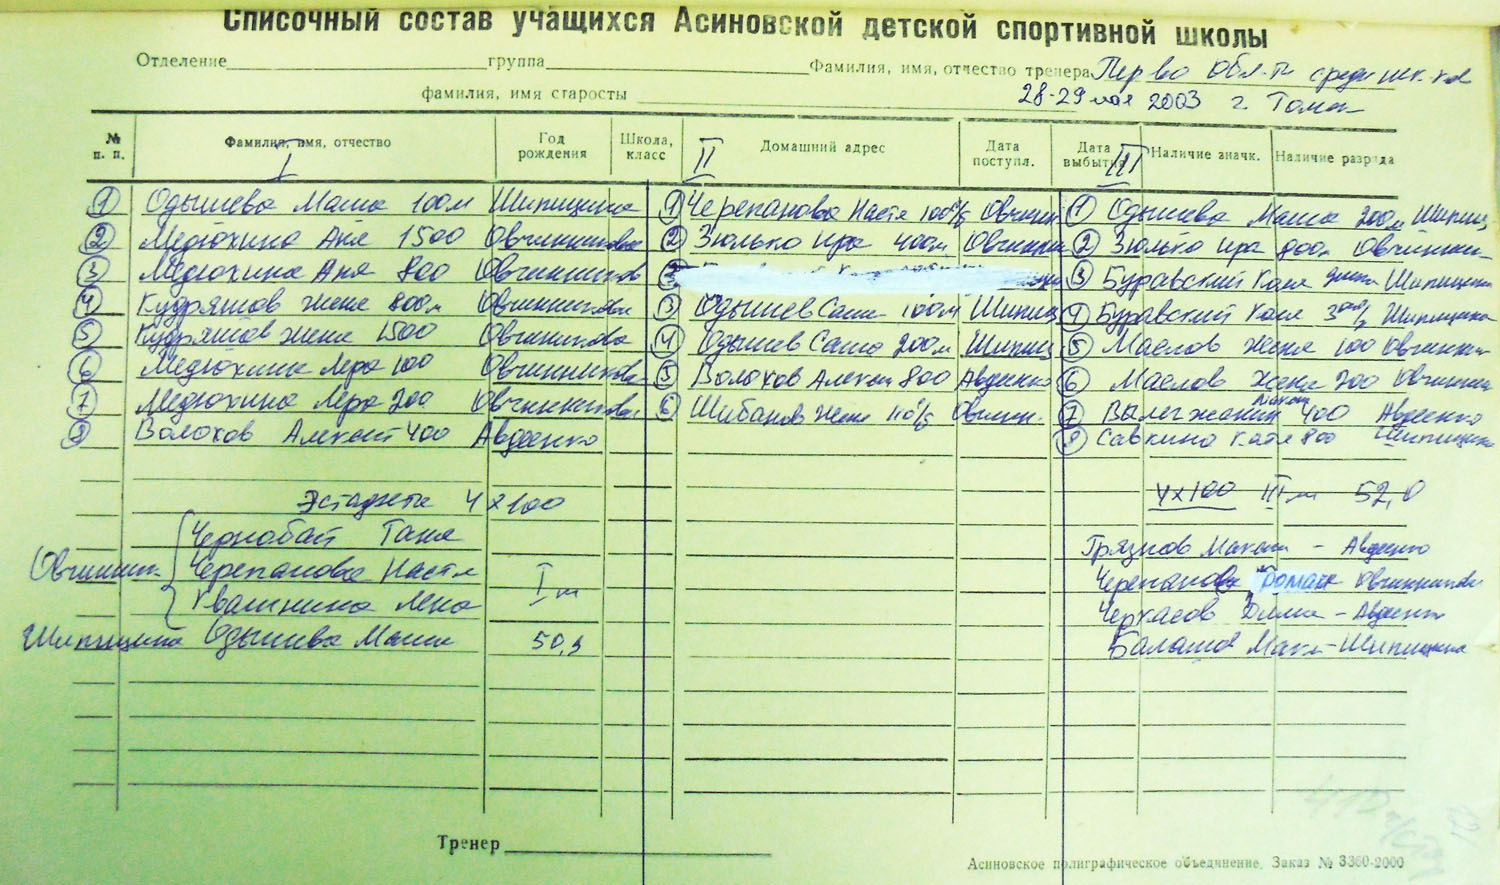 Списочный состав учащихся Асиновской детской спортивной школы
Отделение группа Фамилия, имя, отчество тренера Перво обл-ти среди
фамилия, имя старосты 28-29 мая 2003 г. Томск
№ п. п. Фамилия, имя, отчество Год рождения Школа, класс Домашний адрес Дата поступл. Дата выбытия Наличие значк. Наличие разряда
I II III
1 Одышева Маша 100м Шипицина
2 Медюхина Аня 1500 Овчинникова
3 Медюхина Аня 800 Овчинников
4 Кудряшов Женя 800м Овчинникова
5 Кудряшов Женя 1500 Овчинникова
6 Медюхина Лера 100 Овчинникова
7 Медюхина Лера 200 Овчинникова
8 Волохов Алексей 400 Авдеенко
1 Черепанова Настя 100 б/б Овчинн
2 Зюлько Ира 400м Овчинни
3 Одышев Саша 100м Шипиц
4 Одышев Саша 200м Шипиц
5 Волохов Алексей 800 Авдеенко
6 Шибанов Женя 110 б/б Овчинн.
1 Одышева Маша 200м Шипиц
2 Зюлько Ира 800м Овчинни
3 Буравский Коля Шипицина
4 Буравский Коля Шипицина
5 Маслов Женя 100 Овчинни
6 Маслов Женя 200 Овчинни
7 Вылегжанин 400 Авдеенко
8 Савкина Катя 800 Шипицина
Эстафета 4х100
Овчинник. Чернобай Таня
Черепанова Настя I м
Квашнина Лена
Шипицина Одышева Маша 50,9
4х100 III м 52,0
Грязнов Максим - Авдеенко
Черепанов Роман Овчинникова
Черкасов Дима - Авдеенк
Балашов Макс - Шипицина
Тренер
Асиновское полиграфическое объединение. Заказ № 3360-2000